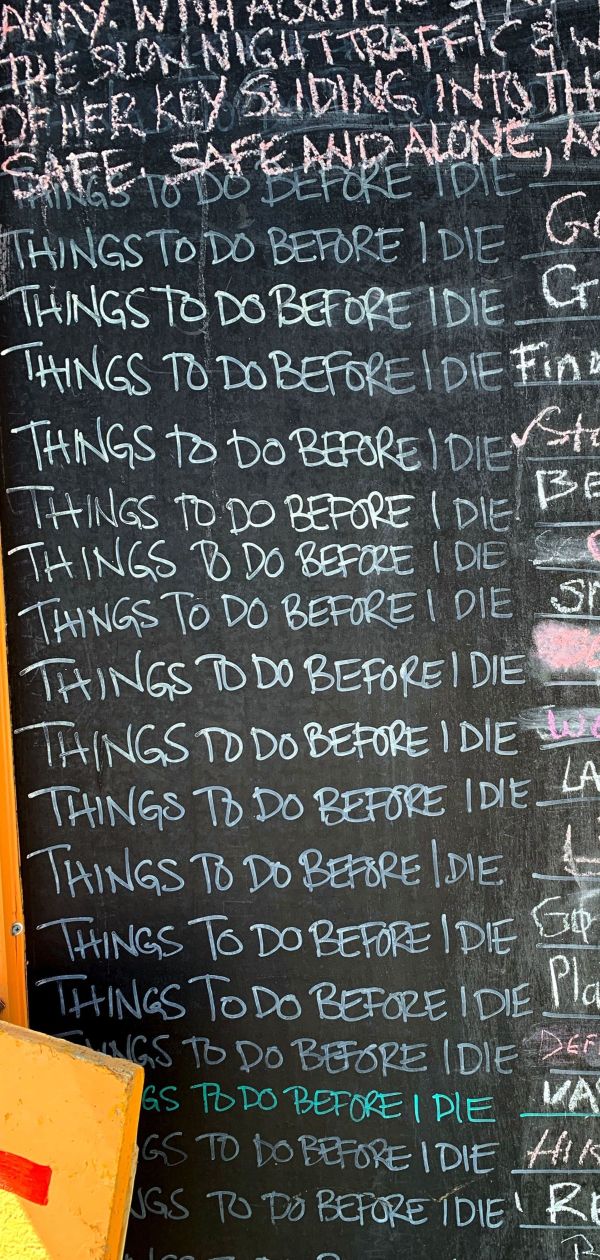 AWAY. WITH
THE SLOW NIGHT TRAFFIC & W
OF HER KEY SLIDING INTO TH
SAFE. SAFE AND ALONE, A
THINGS TO DO BEFORE I DIE
THINGS TO DO BEFORE I DIE G
THINGS TO DO BEFORE I DIE G
THINGS TO DO BEFORE I DIE Fin
THINGS TO DO BEFORE I DIE
THINGS TO DO BEFORE I DIE BE
THINGS TO DO BEFORE I DIE
THINGS TO DO BEFORE I DIE
THINGS TO DO BEFORE I DIE
THINGS TO DO BEFORE I DIE
THINGS TO DO BEFORE I DIE LA
THINGS TO DO BEFORE I DIE
THINGS TO DO BEFORE I DIE GO
THINGS TO DO BEFORE I DIE Pla
NGS TO DO BEFORE I DIE DEF
GS TO DO BEFORE I DIE
GS TO DO BEFORE I DIE HIK
NGS TO DO BEFORE I DIE RE
TO DO BEFORE I DIE